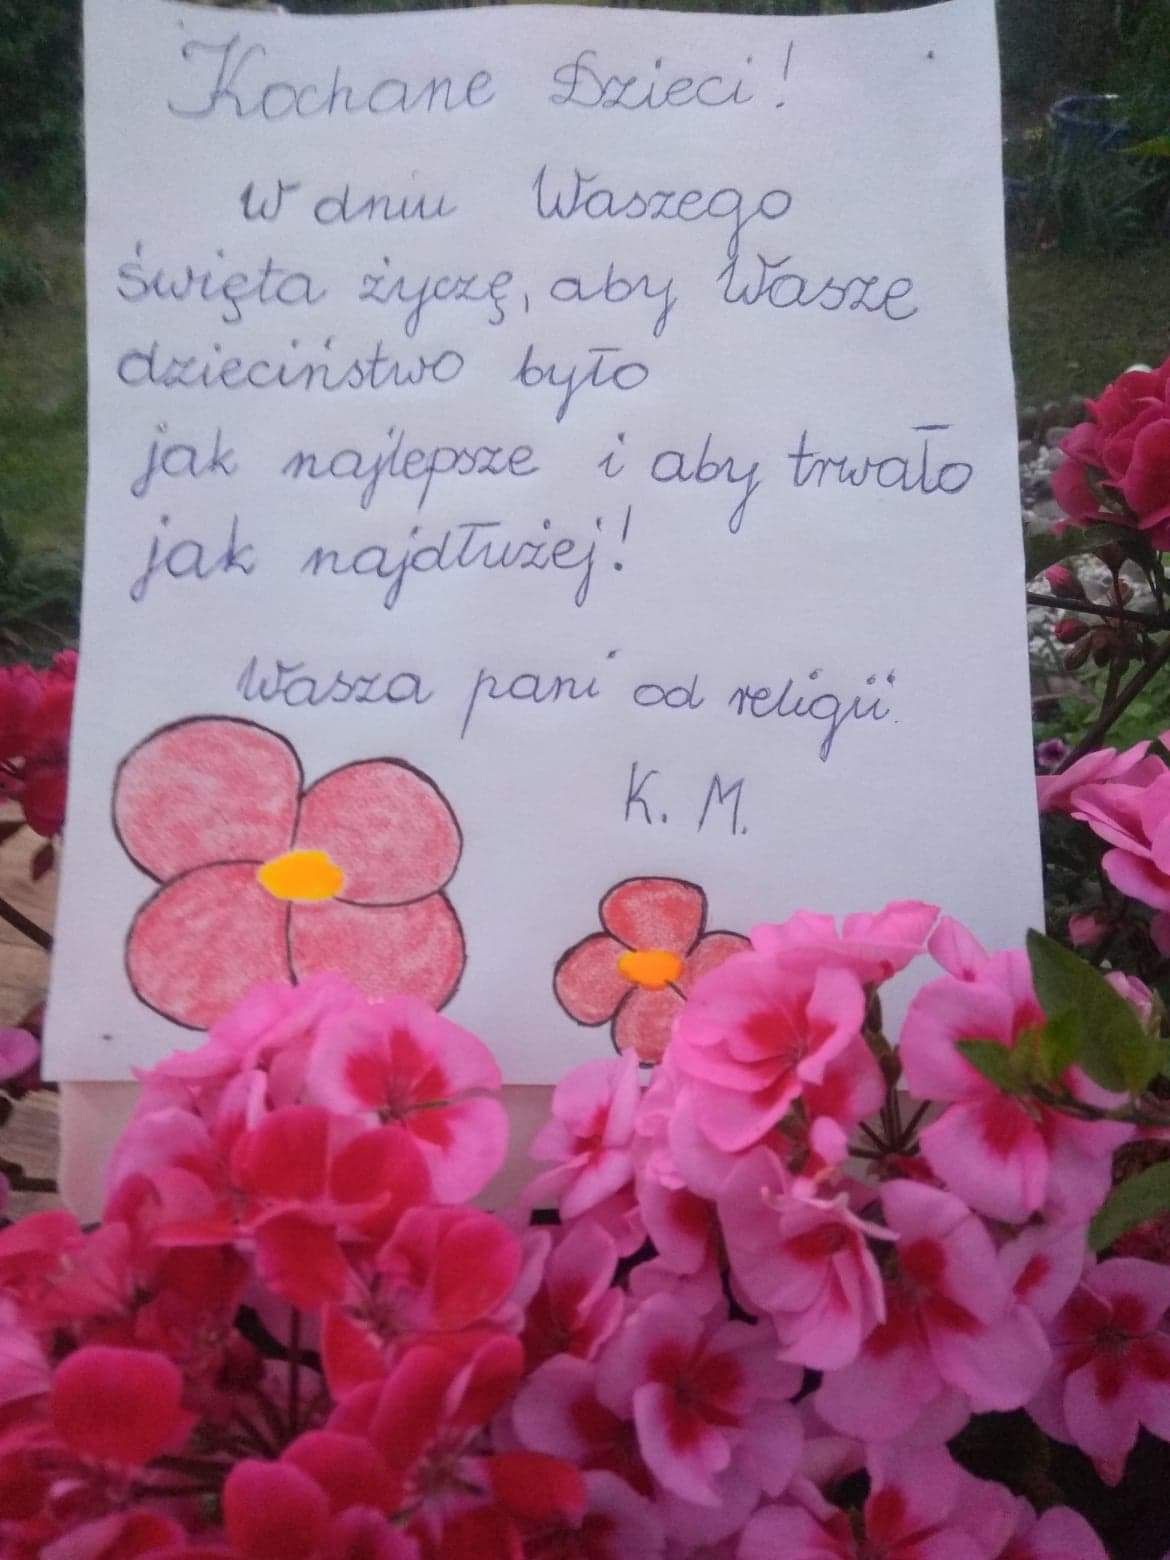 Kochane Dzieci!
W dniu Waszego
święta życzę, aby Wasze
dzieciństwo było
jak najlepsze i aby trwało
jak najdłużej!
Wasza pani od religii.
K. M.